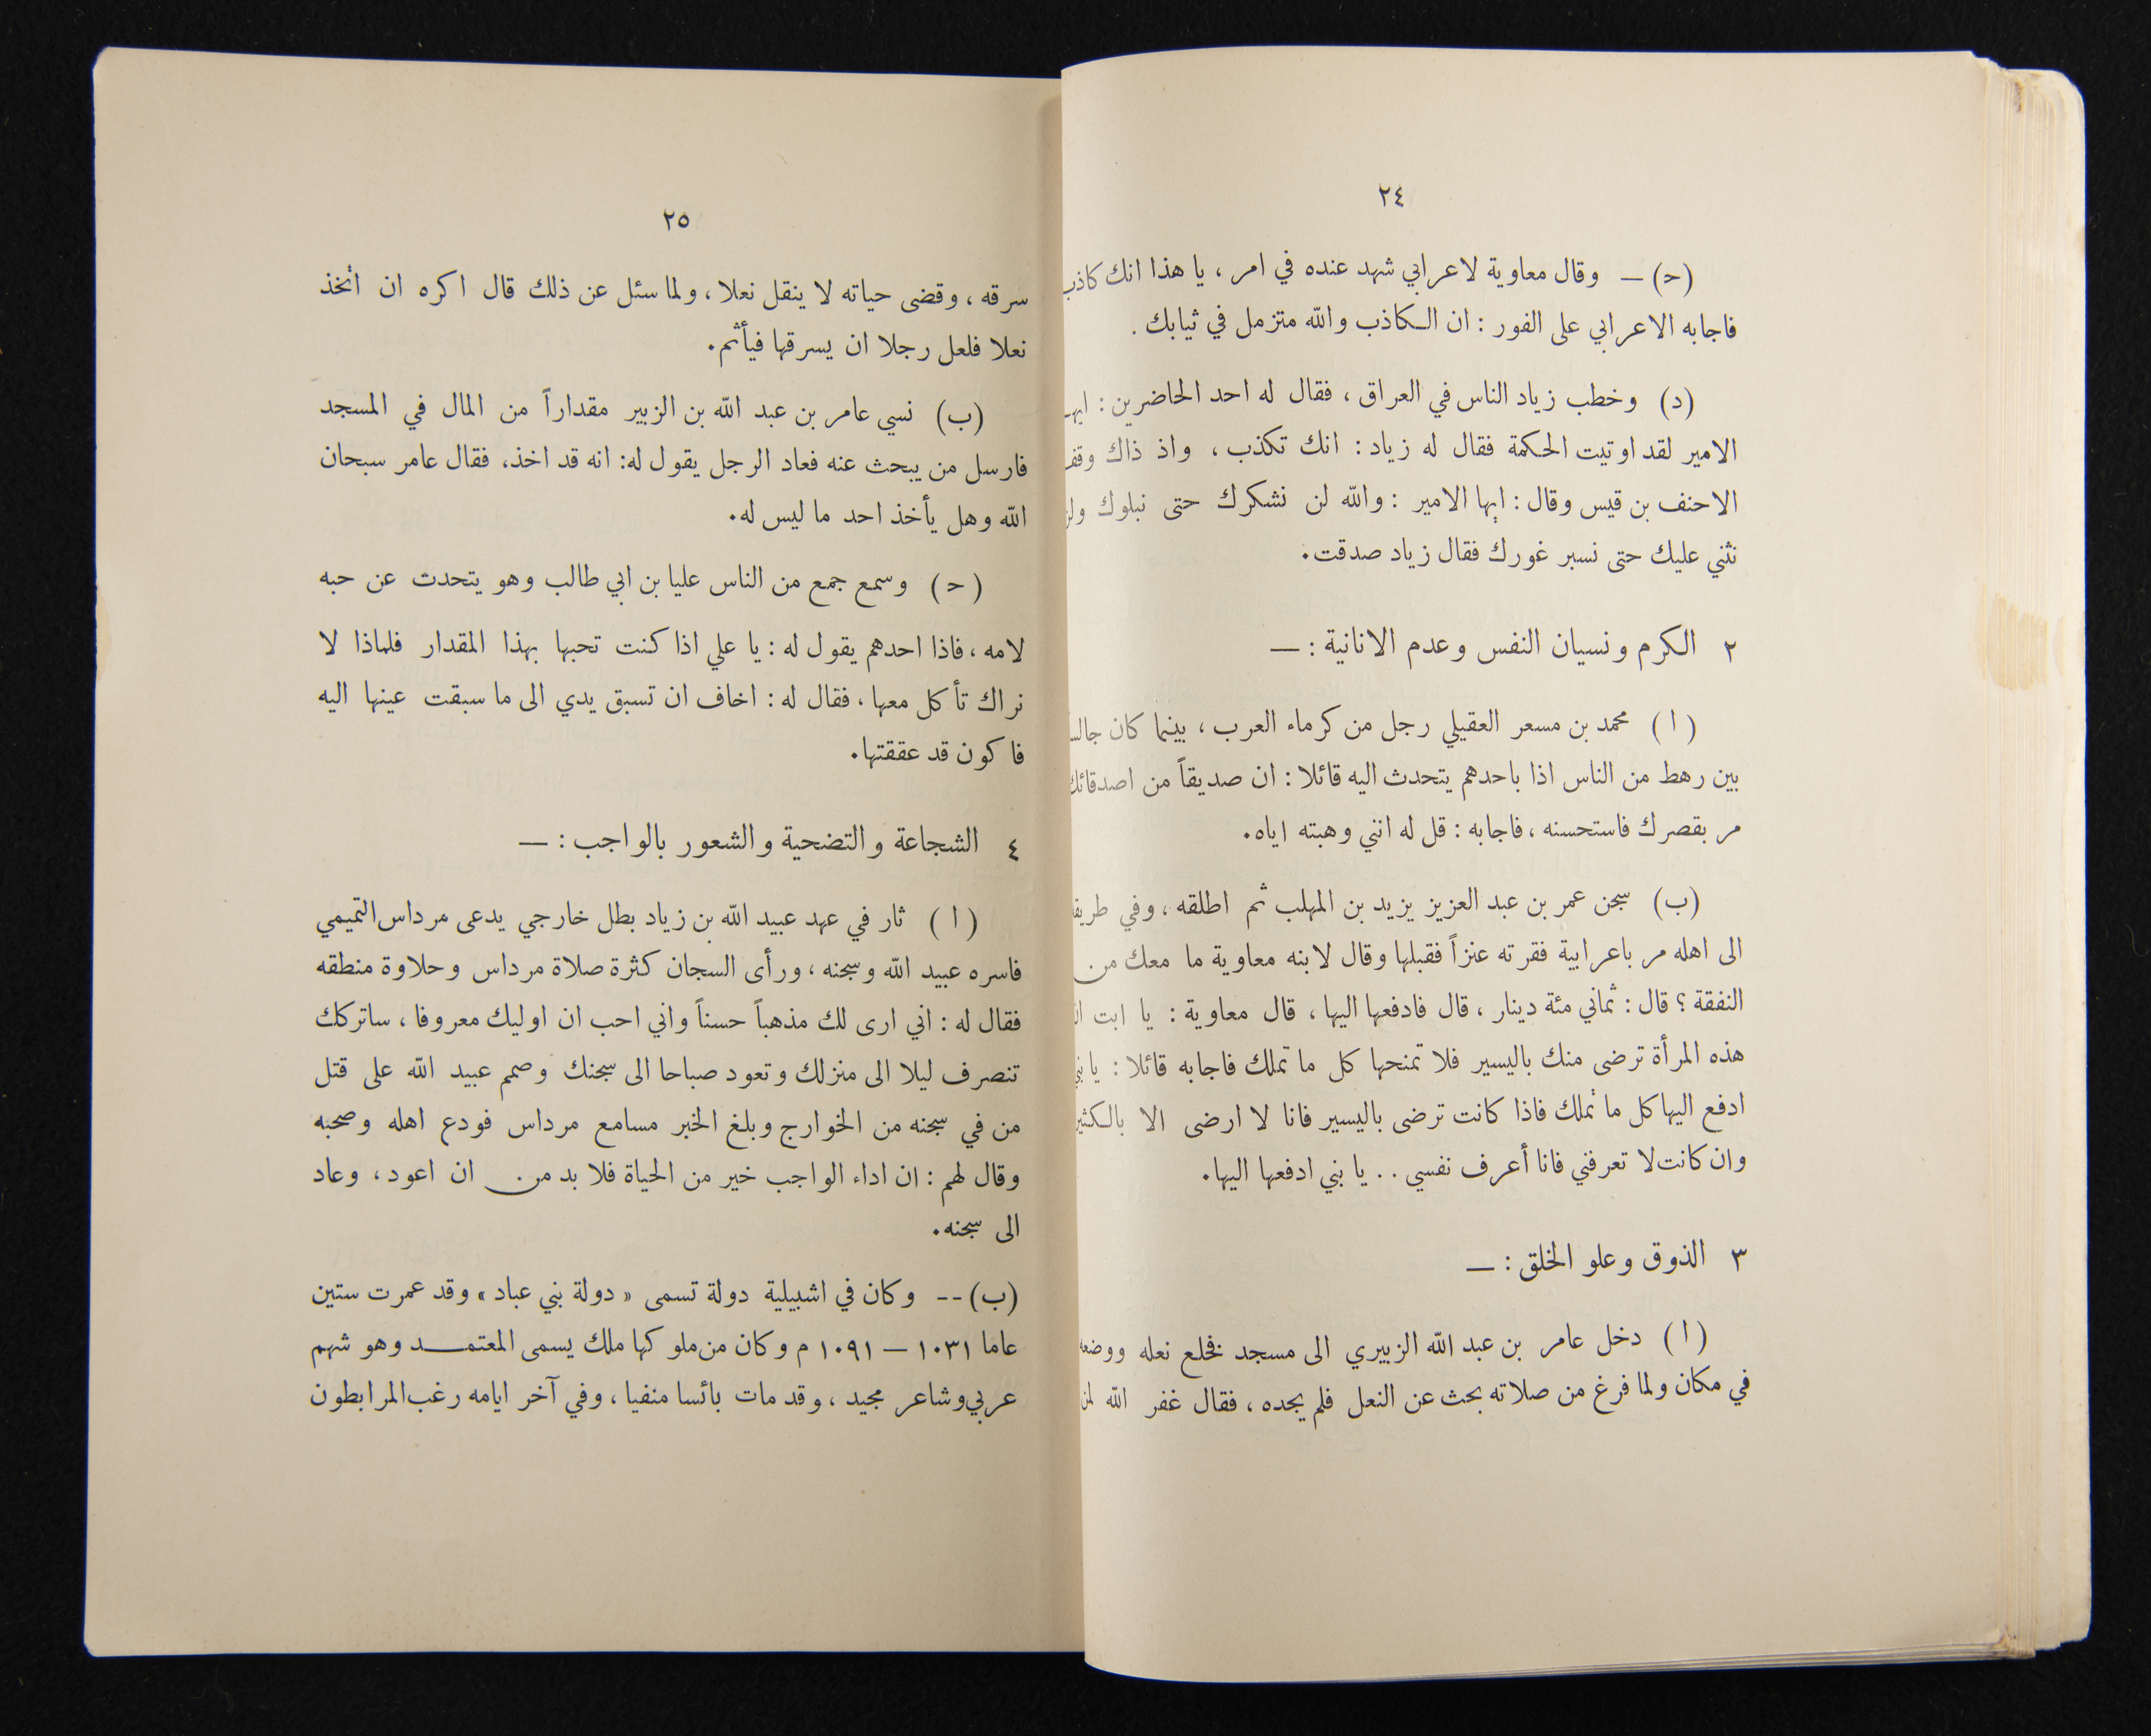 ٢٤
(ح) — وقال معاوية لاعرابي شهد عنده في امر ، يا هذا انك كاذب
فاجابه الاعرابي على الفور : ان الكاذب والله متزمل في ثيابك .
(د) وخطب زياد الناس في العراق ، فقال له احد الحاضرين :
الامير لقد اوتيت الحكمة فقال له زياد : انك تكذب ، واذ ذاك وقف
الاحنف بن قيس وقال : ايها الامير : والله لن نشكرك حتى نبلوك ولن
نثني عليك حتى نسبر غورك فقال زياد صدقت .
٢ الكرم ونسيان النفس وعدم الانانية : —
( ا ) محمد بن مسعر العقيلي رجل من كرماء العرب ، بينما كان جالسا
بين رهط من الناس اذا باحدهم يتحدث اليه قائلا : ان صديقاً من اصدقائك
مر بقصرك فاستحسنه ، فاجابه : قل له انني وهبته اياه .
(ب) سجن عمر بن عبد العزيز يزيد بن المهلب ثم اطلقه ، وفي طريقه
الى اهله مر باعرابية فقرته عنزاً فقبلها وقال لابنه معاوية ما معك من
النفقة ؟ قال : ثماني مئة دينار ، قال فادفعها اليها ، قال معاوية : يا ابت
هذه المرأة ترضى منك باليسير فلا تمنحها كل ما تملك فاجابه قائلا : يا بني
ادفع اليها كل ما تملك فاذا كانت ترضى باليسير فانا لا ارضى الا بالكثير
وان كانت لا تعرفني فانا أعرف نفسي . . يا بني ادفعها اليها .
٣ الذوق وعلو الخلق : —
( ا ) دخل عامر بن عبد الله الزبيري الى مسجد فخلع نعله ووضعه
في مكان ولما فرغ من صلاته بحث عن النعل فلم يجده ، فقال غفر الله لمن
٢٥
سرقه ، وقضى حياته لا ينقل نعلا ، ولما سئل عن ذلك قال اكره ان اتخذ
نعلا فلعل رجلا ان يسرقها فيأثم .
(ب) نسي عامر بن عبد الله بن الزبير مقداراً من المال في المسجد
فارسل من يبحث عنه فعاد الرجل يقول له : انه قد اخذ ، فقال عامر سبحان
الله وهل يأخذ احد ما ليس له .
( ح ) وسمع جمع من الناس عليا بن ابي طالب وهو يتحدث عن حبه
لامه ، فاذا احدهم يقول له : يا علي اذا كنت تحبها بهذا المقدار فلماذا لا
نراك تأكل معها ، فقال له : اخاف ان تسبق يدي الى ما سبقت عينها اليه
فاكون قد عققتها .
٤ الشجاعة والتضحية والشعور بالواجب : —
( ا ) ثار في عهد عبيد الله بن زياد بطل خارجي يدعى مرداس التميمي
فاسره عبيد الله وسجنه ، ورأى السجان كثرة صلاة مرداس وحلاوة منطقه
فقال له : اني ارى لك مذهباً حسناً واني احب ان اوليك معروفا ، ساتركك
تنصرف ليلا الى منزلك وتعود صباحا الى سجنك وصمم عبيد الله على قتل
من في سجنه من الخوارج وبلغ الخبر مسامع مرداس فودع اهله وصحبه
وقال لهم : ان اداء الواجب خير من الحياة فلا بد من ان اعود ، وعاد
الى سجنه .
(ب) -- وكان في اشبيلية دولة تسمى « دولة بني عباد » وقد عمرت ستين
عاما ١٠٣١ — ١٠٩١ م وكان من ملوكها ملك يسمى المعتمد وهو شهم
عربي وشاعر مجيد ، وقد مات بائسا منفيا ، وفي آخر ايامه رغب المرابطون